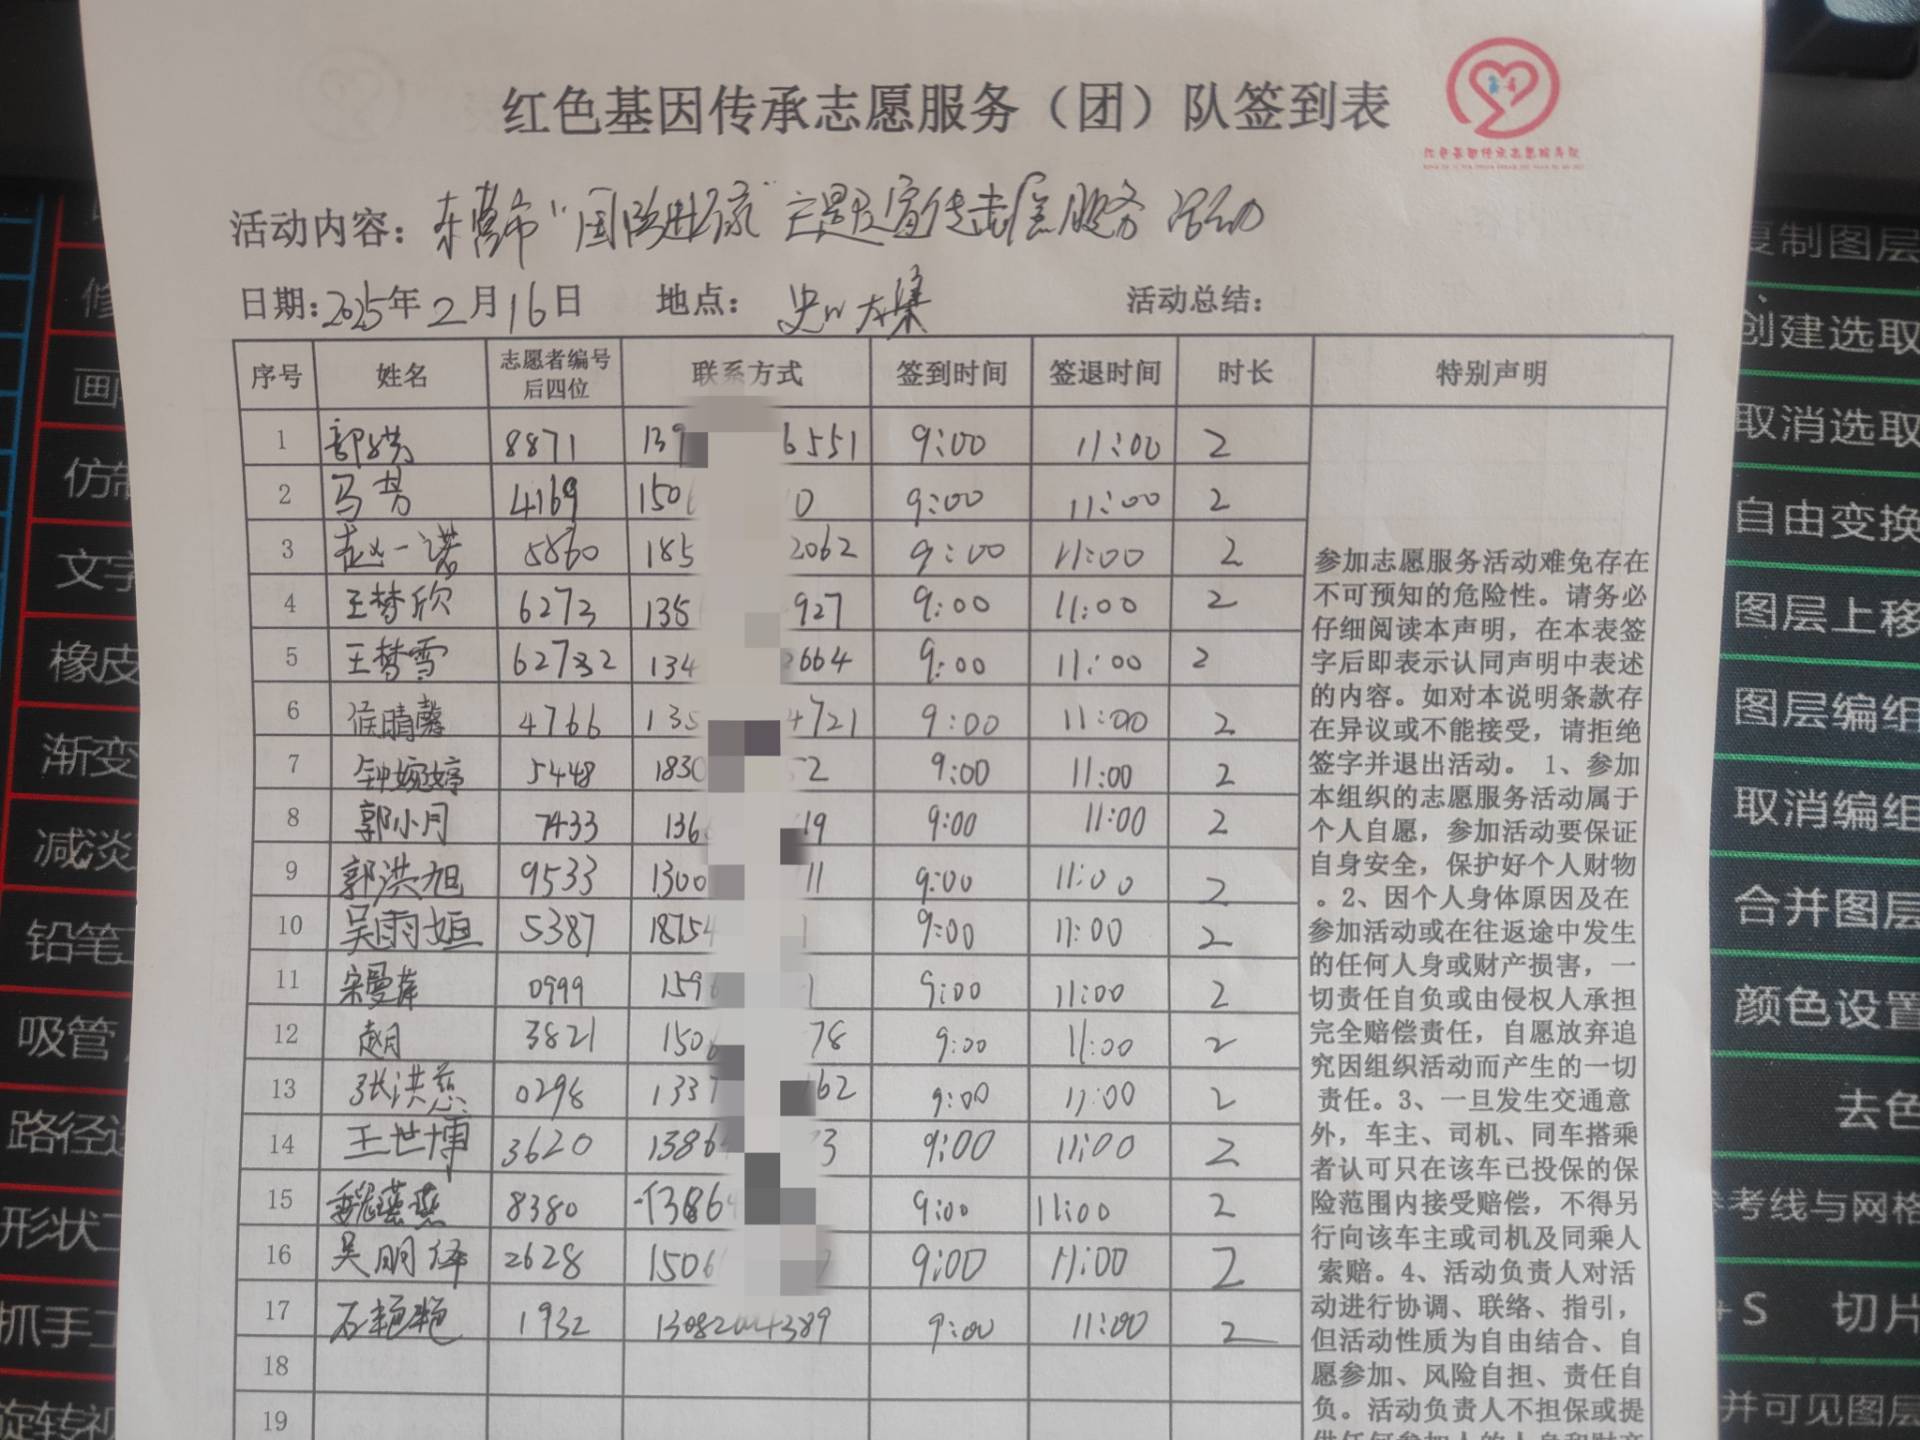 红色基因传承志愿服务（团）队签到表
红色基因传承志愿服务队
活动内容：东营市“国防进家”主题宣传志愿服务活动
日期：2025年2月16日 地点：史口大集 活动总结：
序号 姓名 志愿者编号后四位 联系方式 签到时间 签退时间 时长 特别声明
1 8871 139 6551 9:00 11:00 2
2 马男 4169 150 0 9:00 11:00 2
3 赵一诺 5860 185 2062 9:00 11:00 2
4 王梦欣 6273 135 927 9:00 11:00 2
5 王梦雪 62732 134 2664 9:00 11:00 2
6 侯晴馨 4766 135 4721 9:00 11:00 2
7 钟婉婷 5448 1830 52 9:00 11:00 2
8 郭小月 7433 136 19 9:00 11:00 2
9 郭洪旭 9533 1300 11 9:00 11:00 2
10 吴雨姮 5387 18754 1 9:00 11:00 2
11 宋曼萍 0999 159 1 9:00 11:00 2
12 赵月 3821 150 78 9:00 11:00 2
13 张洪慈 0298 1337 162 9:00 11:00 2
14 王世博 3620 1386 3 9:00 11:00 2
15 魏燕燕 8380 13864 9:00 11:00 2
16 吴明泽 2628 1506 9:00 11:00 2
17 石艳艳 1932 13082004389 9:00 11:00 2
18
19
参加志愿服务活动难免存在
不可预知的危险性。请务必
仔细阅读本声明，在本表签
字后即表示认同声明中表述
的内容。如对本说明条款存
在异议或不能接受，请拒绝
签字并退出活动。 1、参加
本组织的志愿服务活动属于
个人自愿，参加活动要保证
自身安全，保护好个人财物
。2、因个人身体原因及在
参加活动或在往返途中发生
的任何人身或财产损害，一
切责任自负或由侵权人承担
完全赔偿责任，自愿放弃追
究因组织活动而产生的一切
责任。3、一旦发生交通意
外，车主、司机、同车搭乘
者认可只在该车已投保的保
险范围内接受赔偿，不得另
行向该车主或司机及同乘人
索赔。4、活动负责人对活
动进行协调、联络、指引，
但活动性质为自由结合、自
愿参加、风险自担、责任自
负。活动负责人不担保或提
供任何参加人的人身和财产
修
画
仿制
文字
橡皮
渐变
减淡
铅笔工
吸管
路径选
形状工
抓手工
旋转视
复制图层
创建选取
取消选取
自由变换
图层上移
图层编组
取消编组
合并图层
颜色设置
去色
参考线与网格
+S 切片
并可见图层